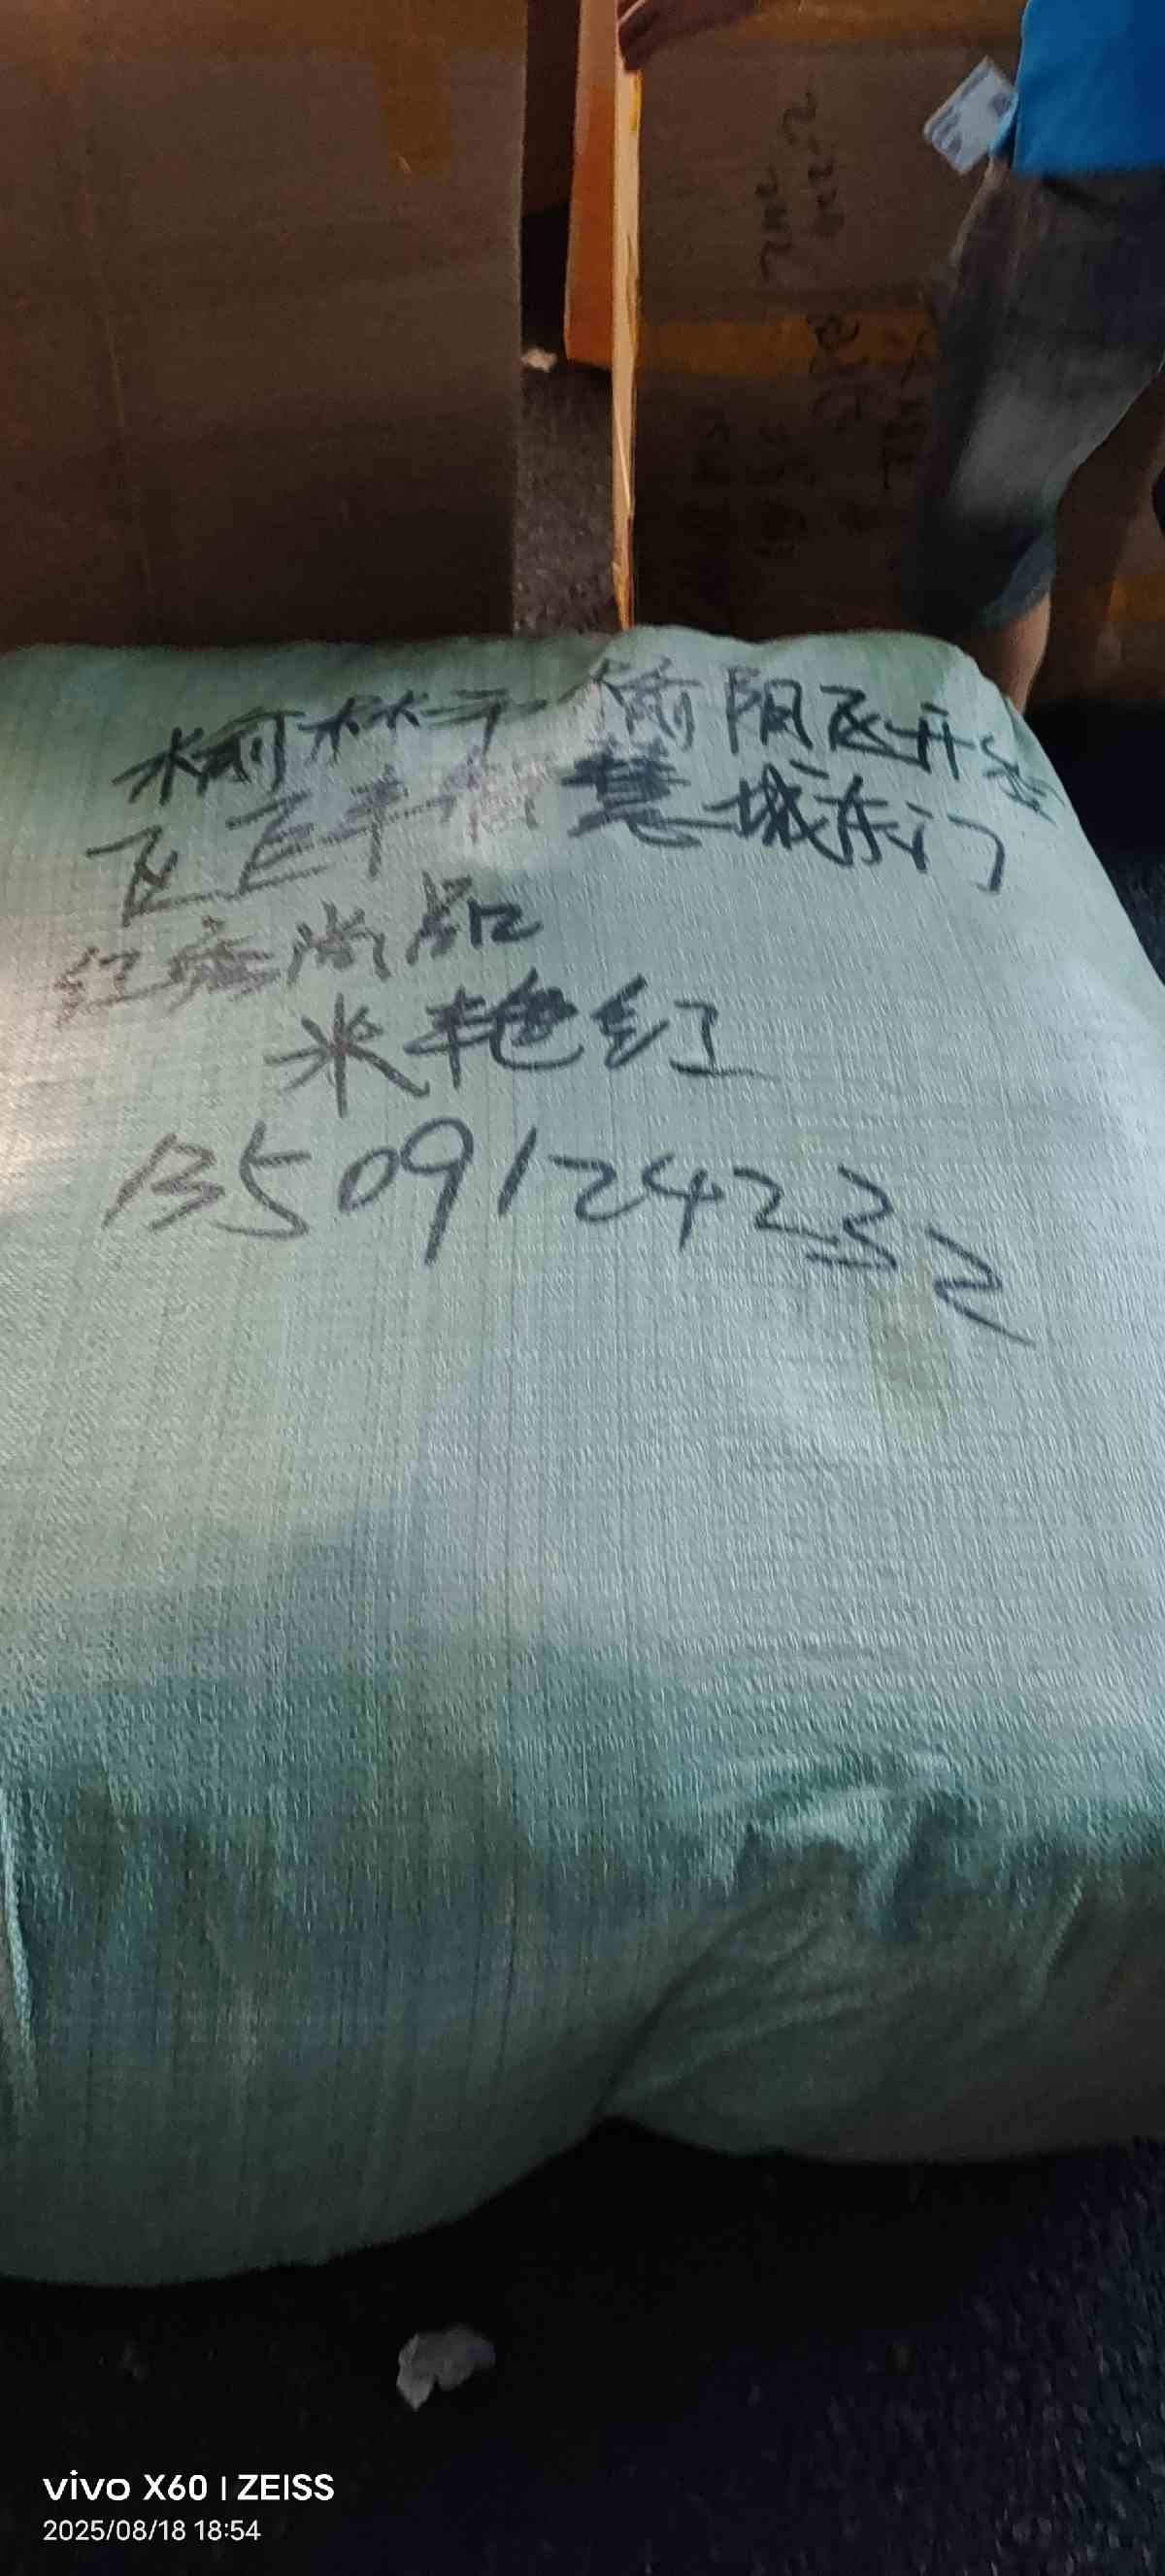 榆林市榆阳区开发
区飞丰智慧城东门
红秀尚品
米艳红
13509124232
vivo X60 | ZEISS
2025/08/18 18:54